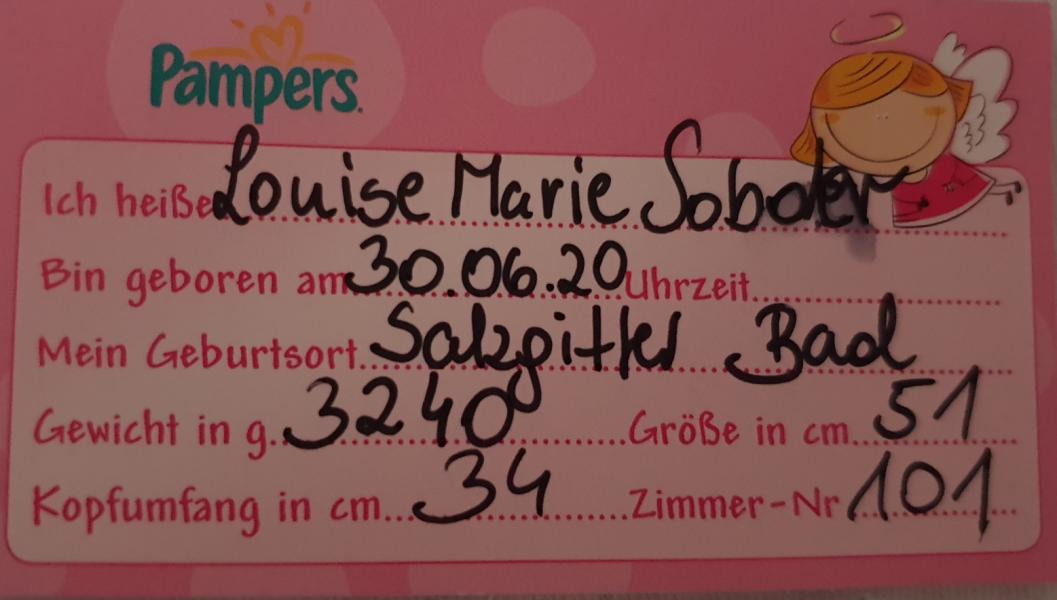 Pampers
Ich heiße Louise Marie
Bin geboren am 30.06.20 Uhrzeit
Mein Geburtsort Salzgitter Bad
Gewicht in g. 3240 Größe in cm 51
Kopfumfang in cm 34 Zimmer-Nr 101